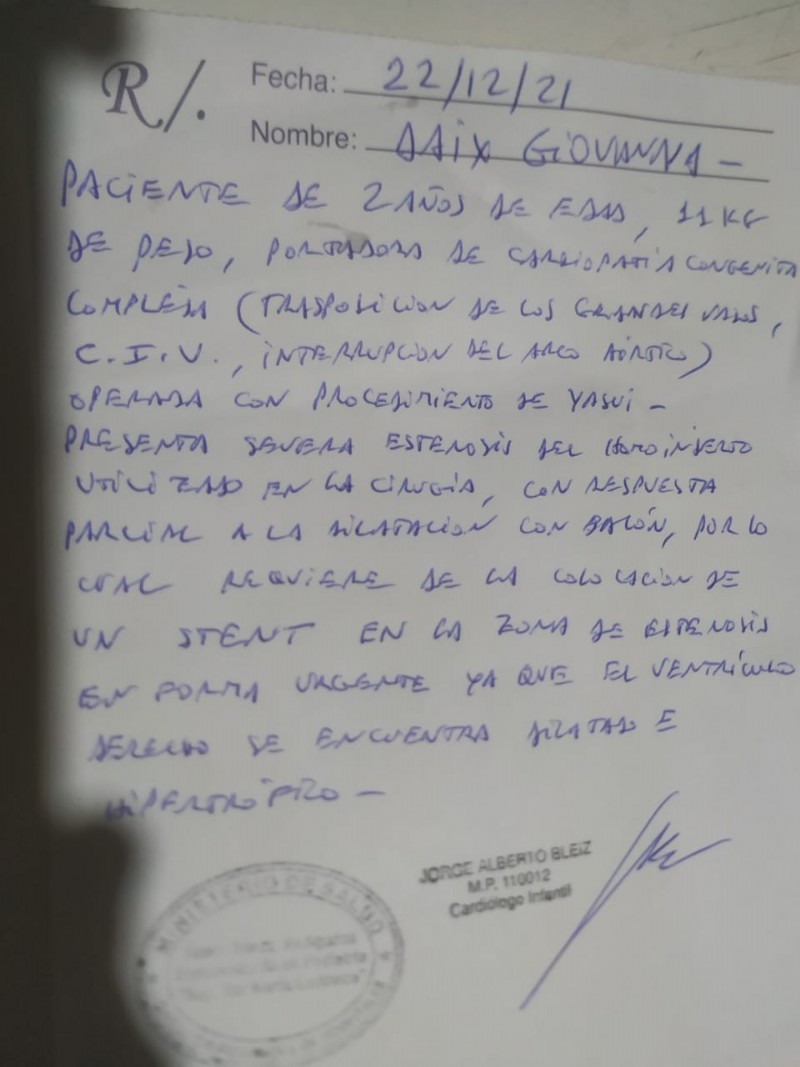 R/.
Fecha: 22/12/21
Nombre: DAIX GIOVANNA -
PACIENTE DE 2 AÑOS DE EDAD, 11 KG
DE PESO, PORTADORA DE CARDIOPATIA CONGENITA
COMPLEJA (TRASPOSICION DE LOS GRANDES VASOS,
C.I.V., INTERRUPCION DEL ARCO AÓRTICO)
OPERADA CON PROCEDIMIENTO DE YASUI -
PRESENTA SEVERA ESTENOSIS DEL HOMOINJERTO
UTILIZADO EN LA CIRUGÍA, CON RESPUESTA
PARCIAL A LA DILATACION CON BALÓN, POR LO
CUAL REQUIERE DE LA COLOCACION DE
UN STENT EN LA ZONA DE ESTENOSIS
EN FORMA URGENTE YA QUE EL VENTRÍCULO
DERECHO SE ENCUENTRA DILATADO E
HIPERTRÓFICO -
JORGE ALBERTO BLEIZ
M.P. 110012
Cardiologo Infantil
MINISTERIO DE SALUD